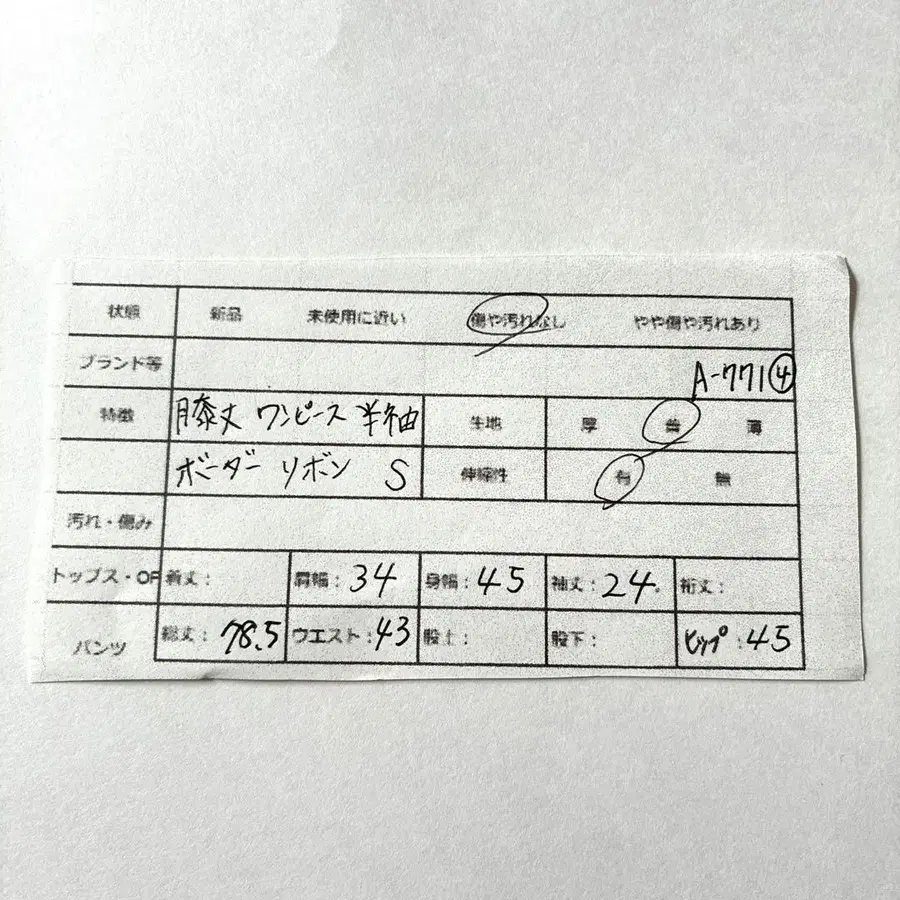 状態 新品 未使用に近い 傷や汚れなし やや傷や汚れあり
ブランド等 A-771④
特徴 膝丈 ワンピース 半袖 生地 厚 普 薄
ボーダー リボン S 伸縮性 有 無
汚れ・傷み
トップス・OP 着丈: 肩幅:34 身幅:45 袖丈:24. 裄丈:
パンツ 総丈:78.5 ウエスト:43 股上: 股下: ヒップ:45